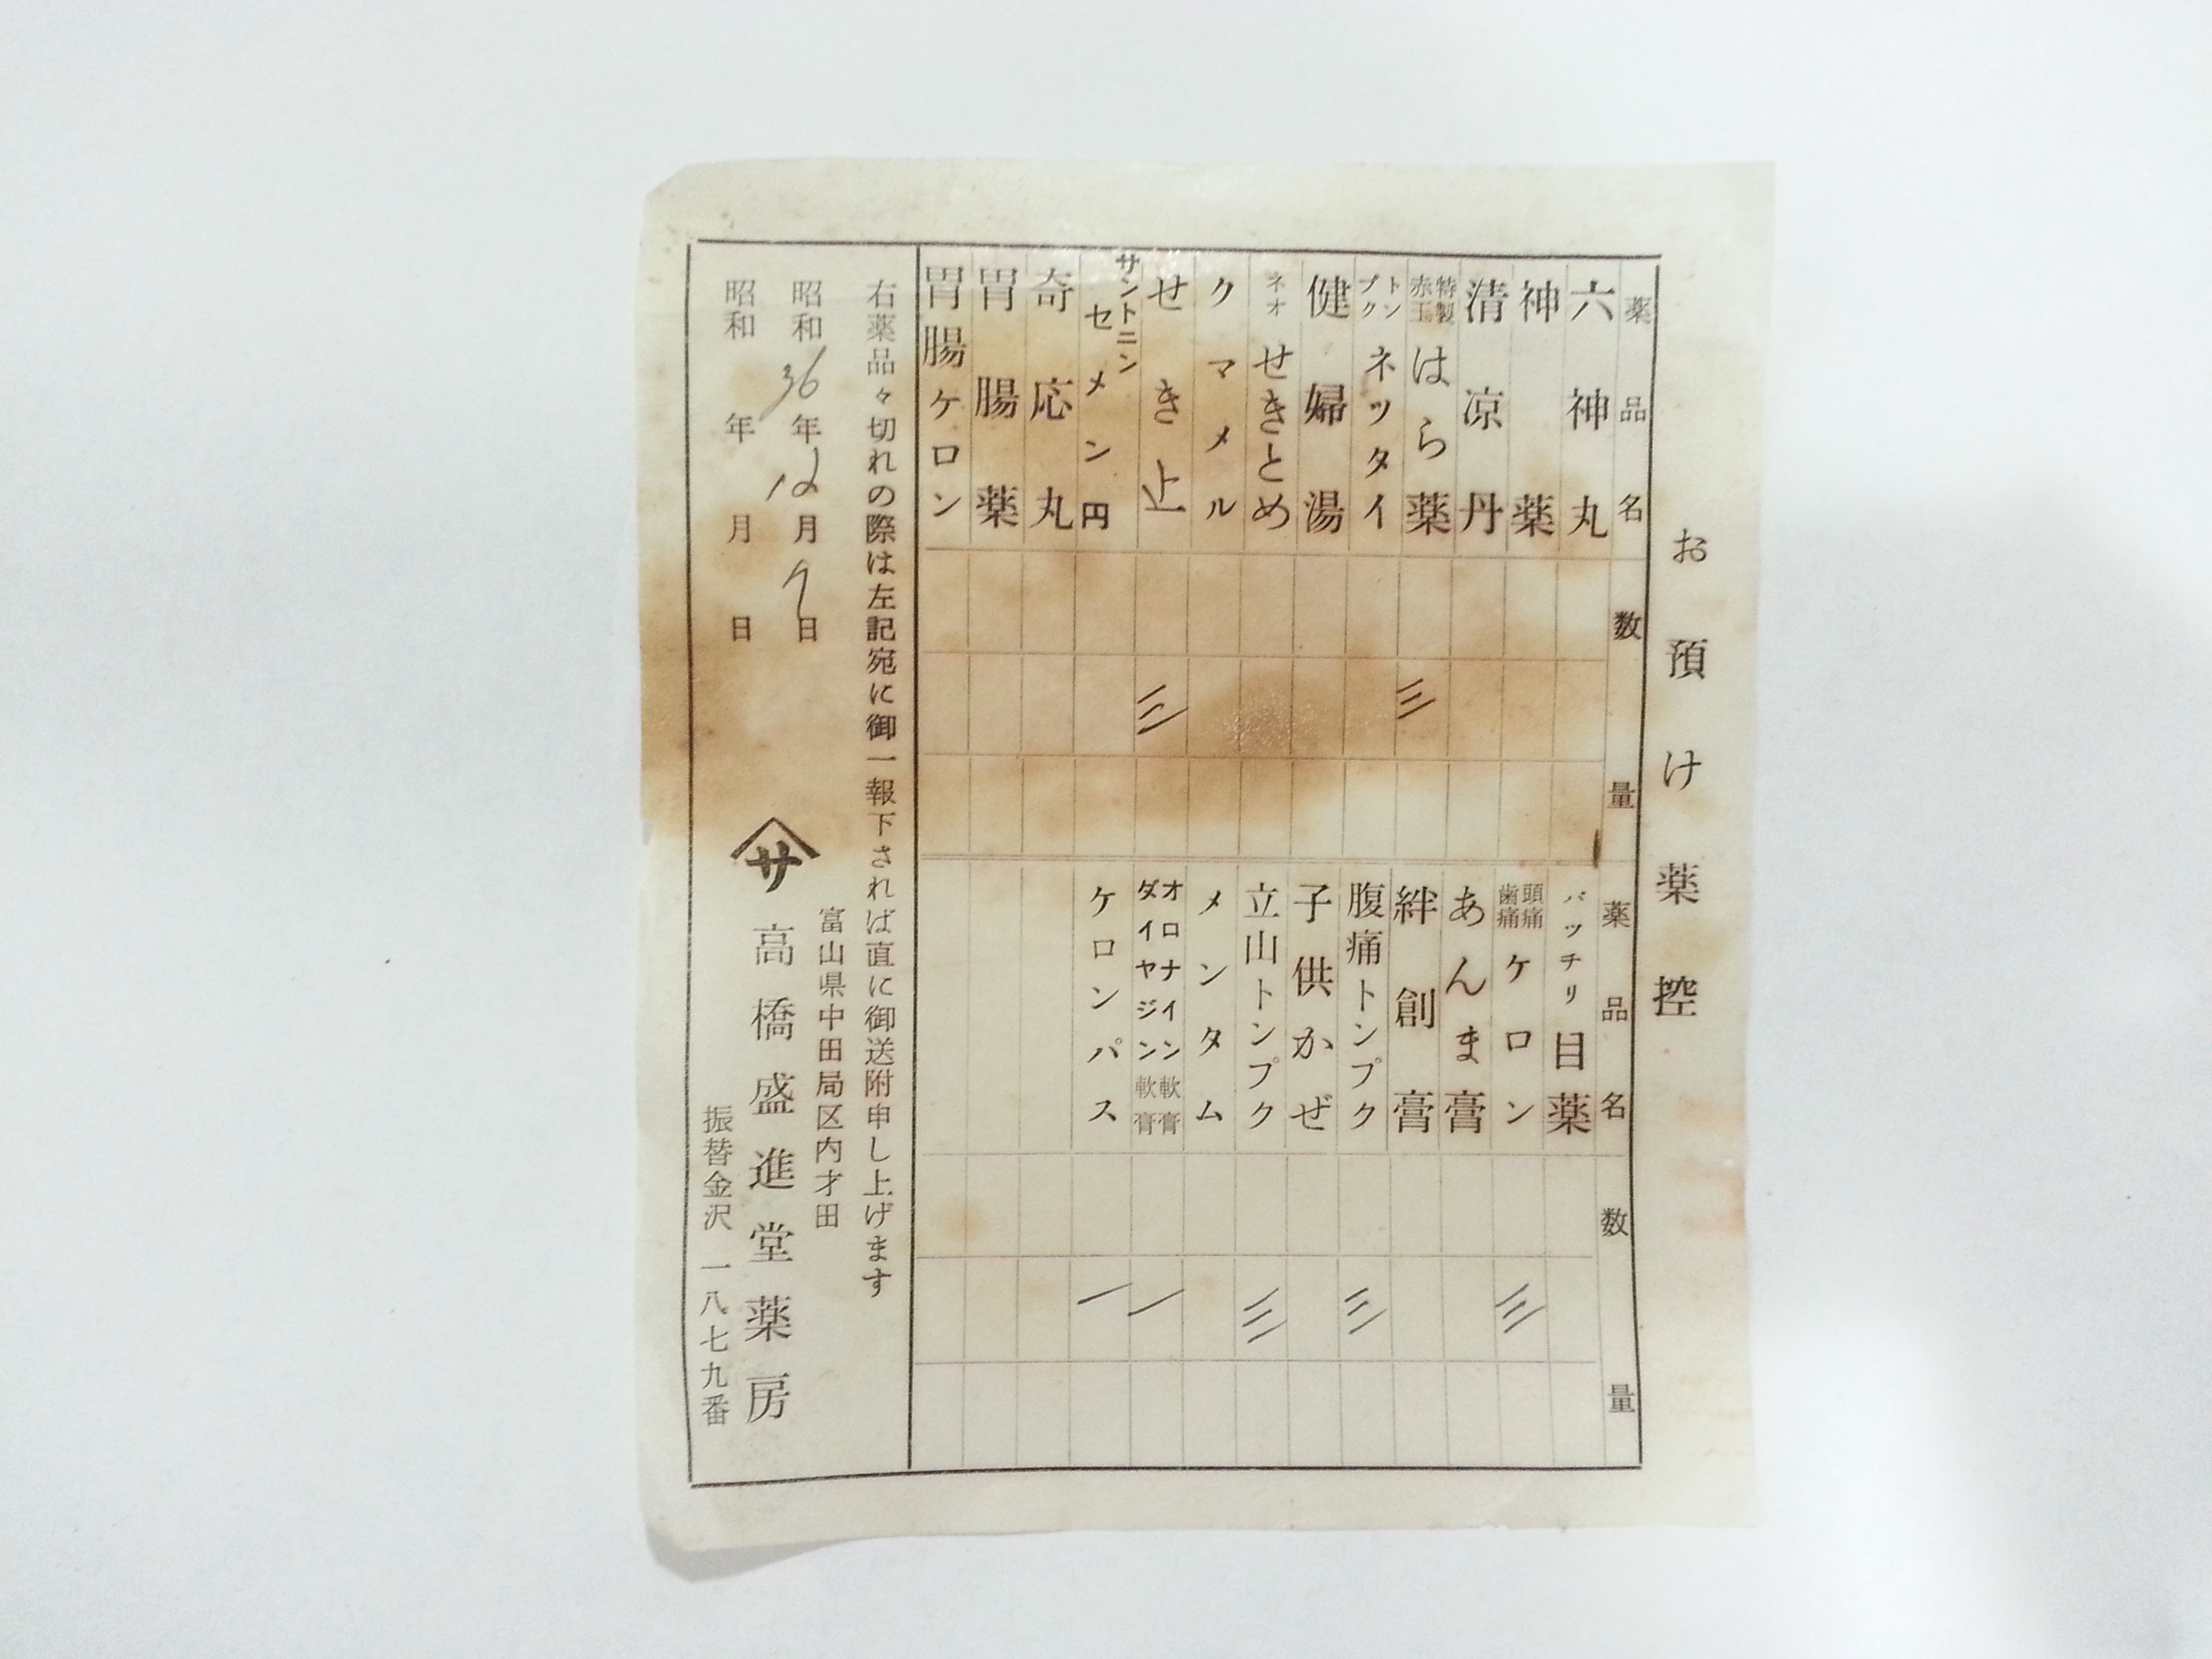 お預け薬控
薬品名
数量
六神丸
神薬
清涼丹
特製赤玉はら薬
トンプクネッタイ
健婦湯
ネオせきとめ
クマメル
せき止
三
サントニンセメン円
奇応丸
胃腸薬
胃腸ケロン
三
薬品名
数量
パッチリ目薬
頭痛歯痛ケロン
三
あんま膏
絆創膏
腹痛トンプク
三
子供かぜ
立山トンプク
三
メンタム
オロナイン軟膏
ダイヤジン軟膏
一
ケロンパス
一
右薬品々切れの際は左記宛に御一報下されば直に御送附申し上げます
昭和36年12月9日
昭和 年 月 日
富山県中田局区内才田
サ 高橋盛進堂薬房
振替金沢一八七九番